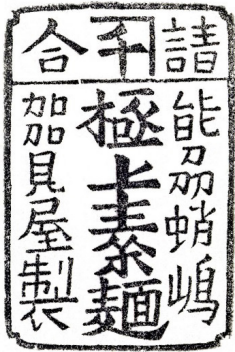 請千合
能刕蛸嶋
極上素麺
加賀屋製